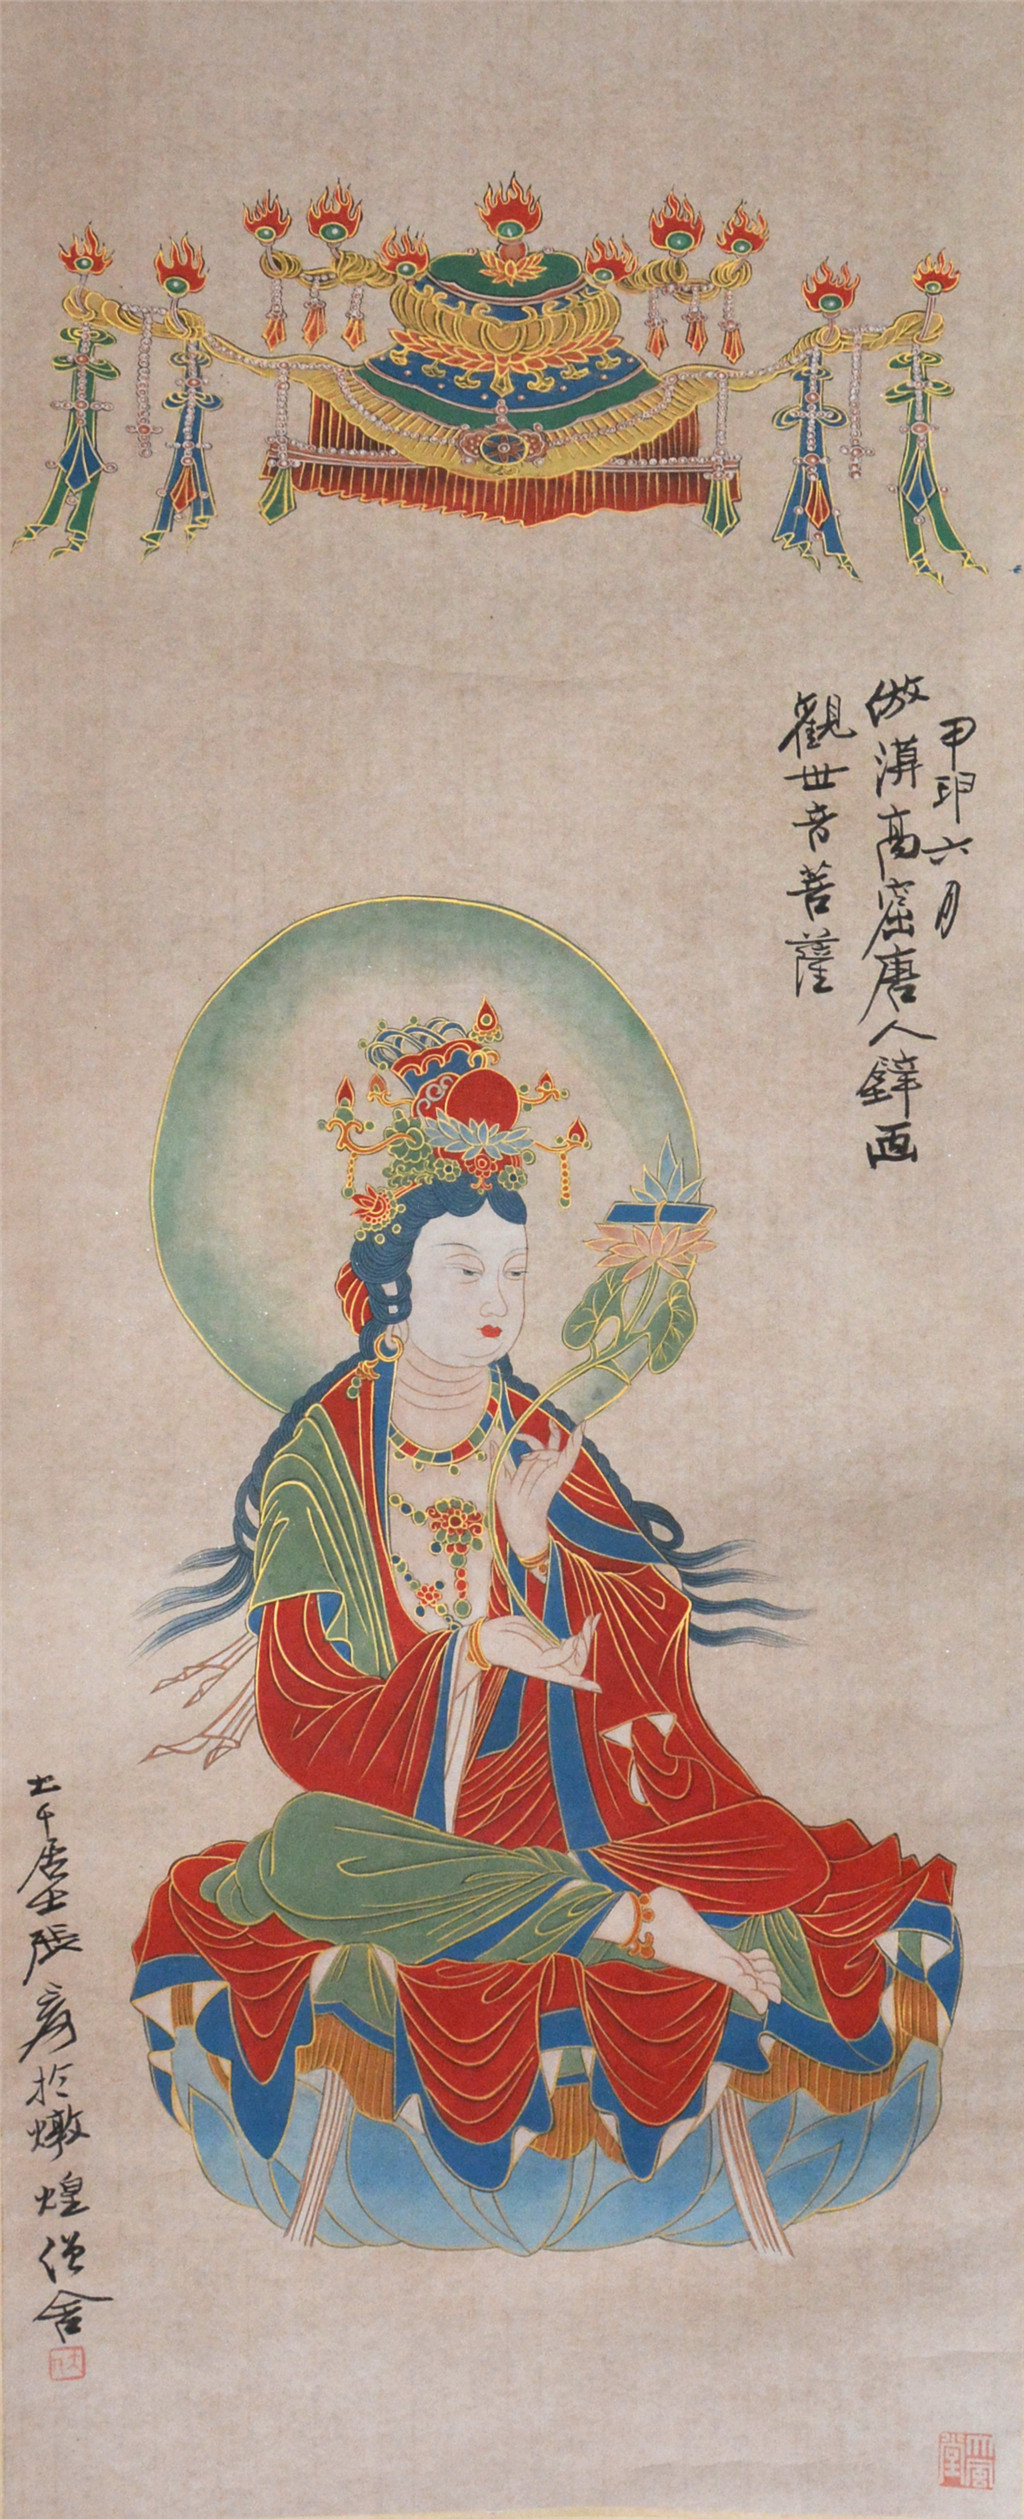 甲申六月
倣漠高窟唐人壁画
觀世音菩薩
大千居士張爰於燉煌僧舍
大風堂